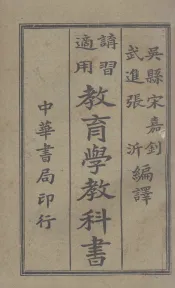 吳縣宋嘉釗
武進張沂
編譯
講習
適用
教育學教科書
中華書局印行